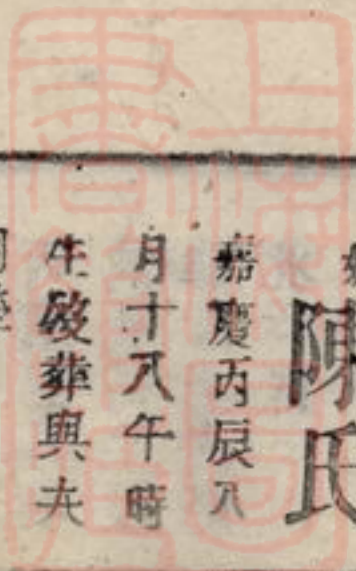 陳氏
嘉慶丙辰八
月十八午時
生歿葬與夫